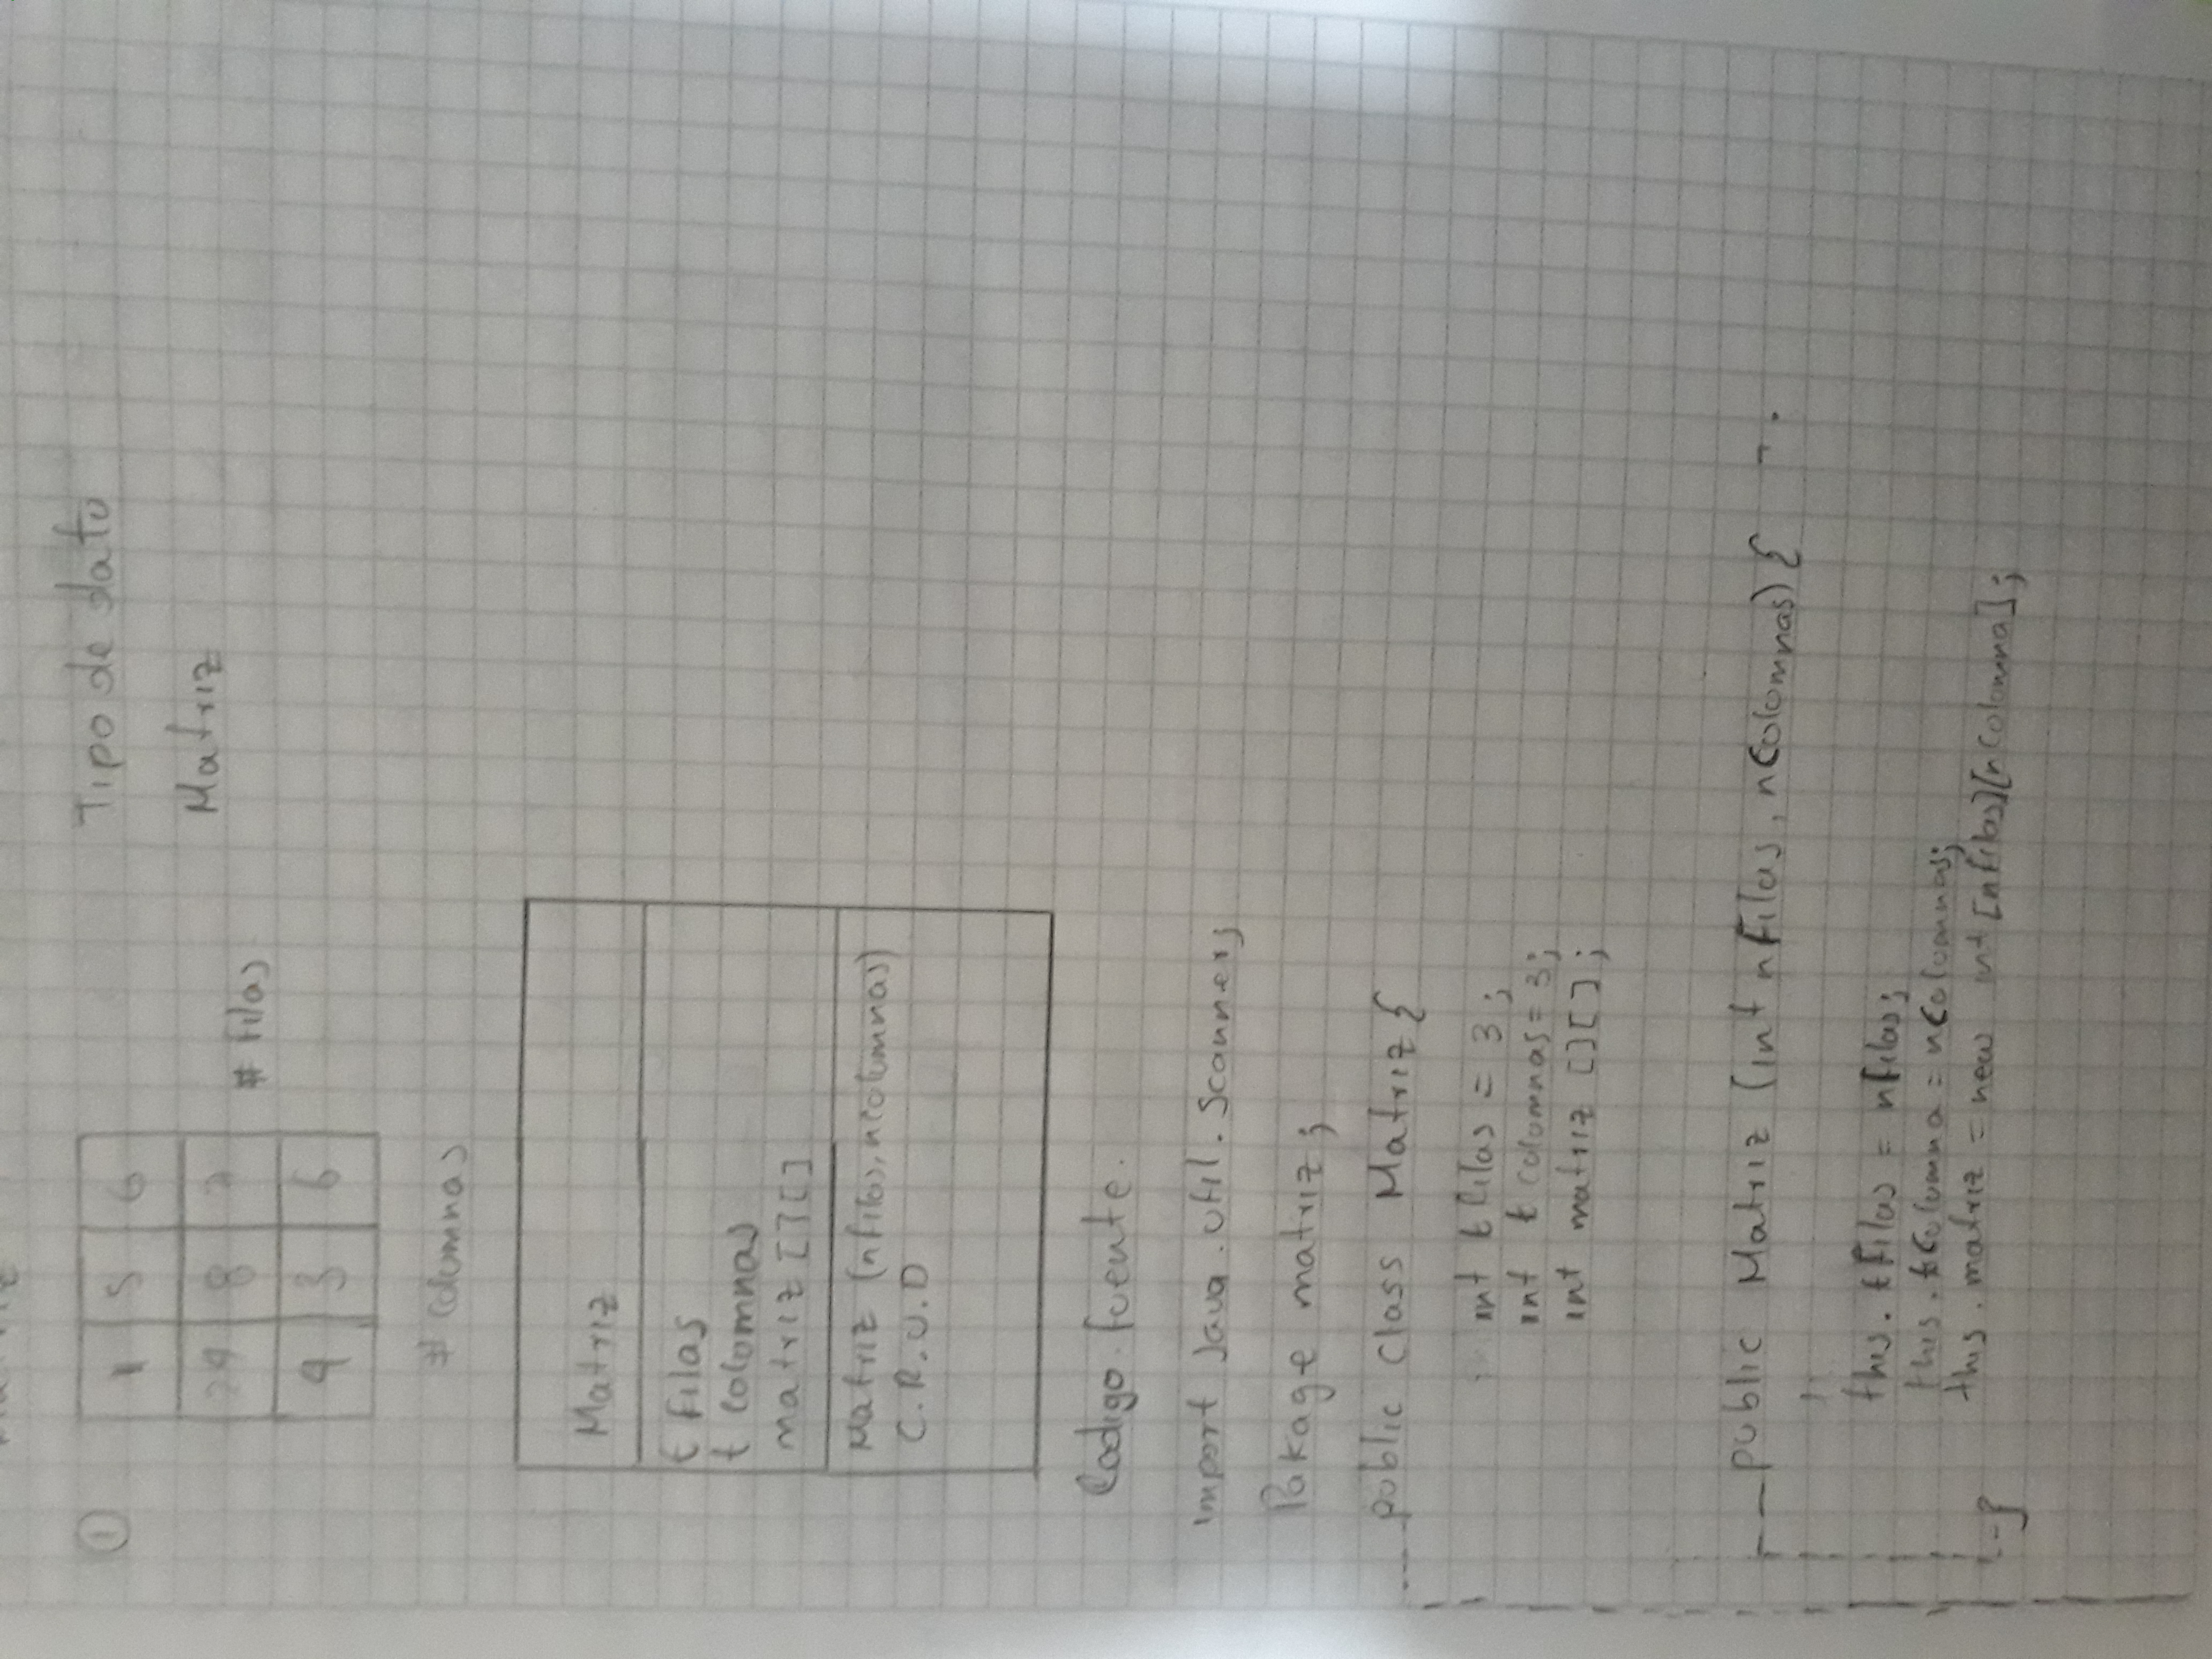 Matriz
① Tipo de dato
1 5 6
Matriz
29 8 7
# filas
9 3 6
# Columnas
Matriz
t Filas
t Colomnas
matriz [][]
Matriz (nfilas, ncolumnas)
C.R.U.D
Codigo fuente.
import Java.util.Scanner;
Pakage matriz;
public class Matriz {
int t filas = 3;
int t colomnas = 3;
int matriz [][];
public Matriz (int nFilas, nColomnas) {
this. tFilas = nFilas;
this. tColumna = nColumnas;
this. matriz = new int [nfilas][nColomna];
}